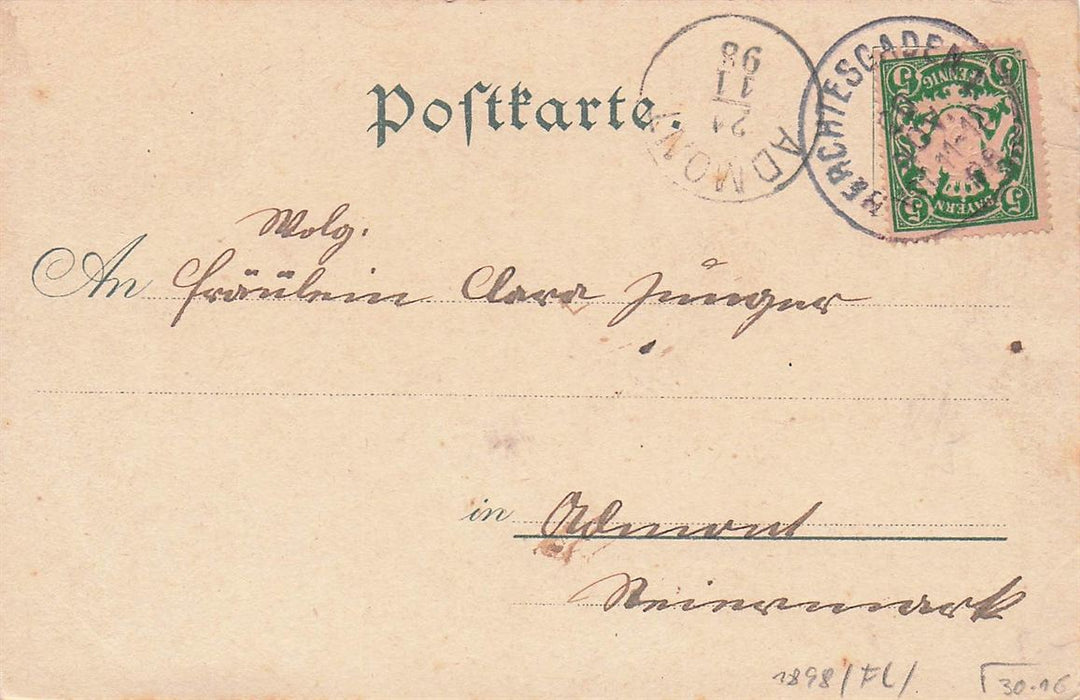 Postkarte.
ADMONT
24
11
98
BERCHTESGADEN
5 PFENNIG 5
5 BAYERN 5
Wolg.
An Fräulein Clara Junger
in Admont
Steiermark
1898/FL/